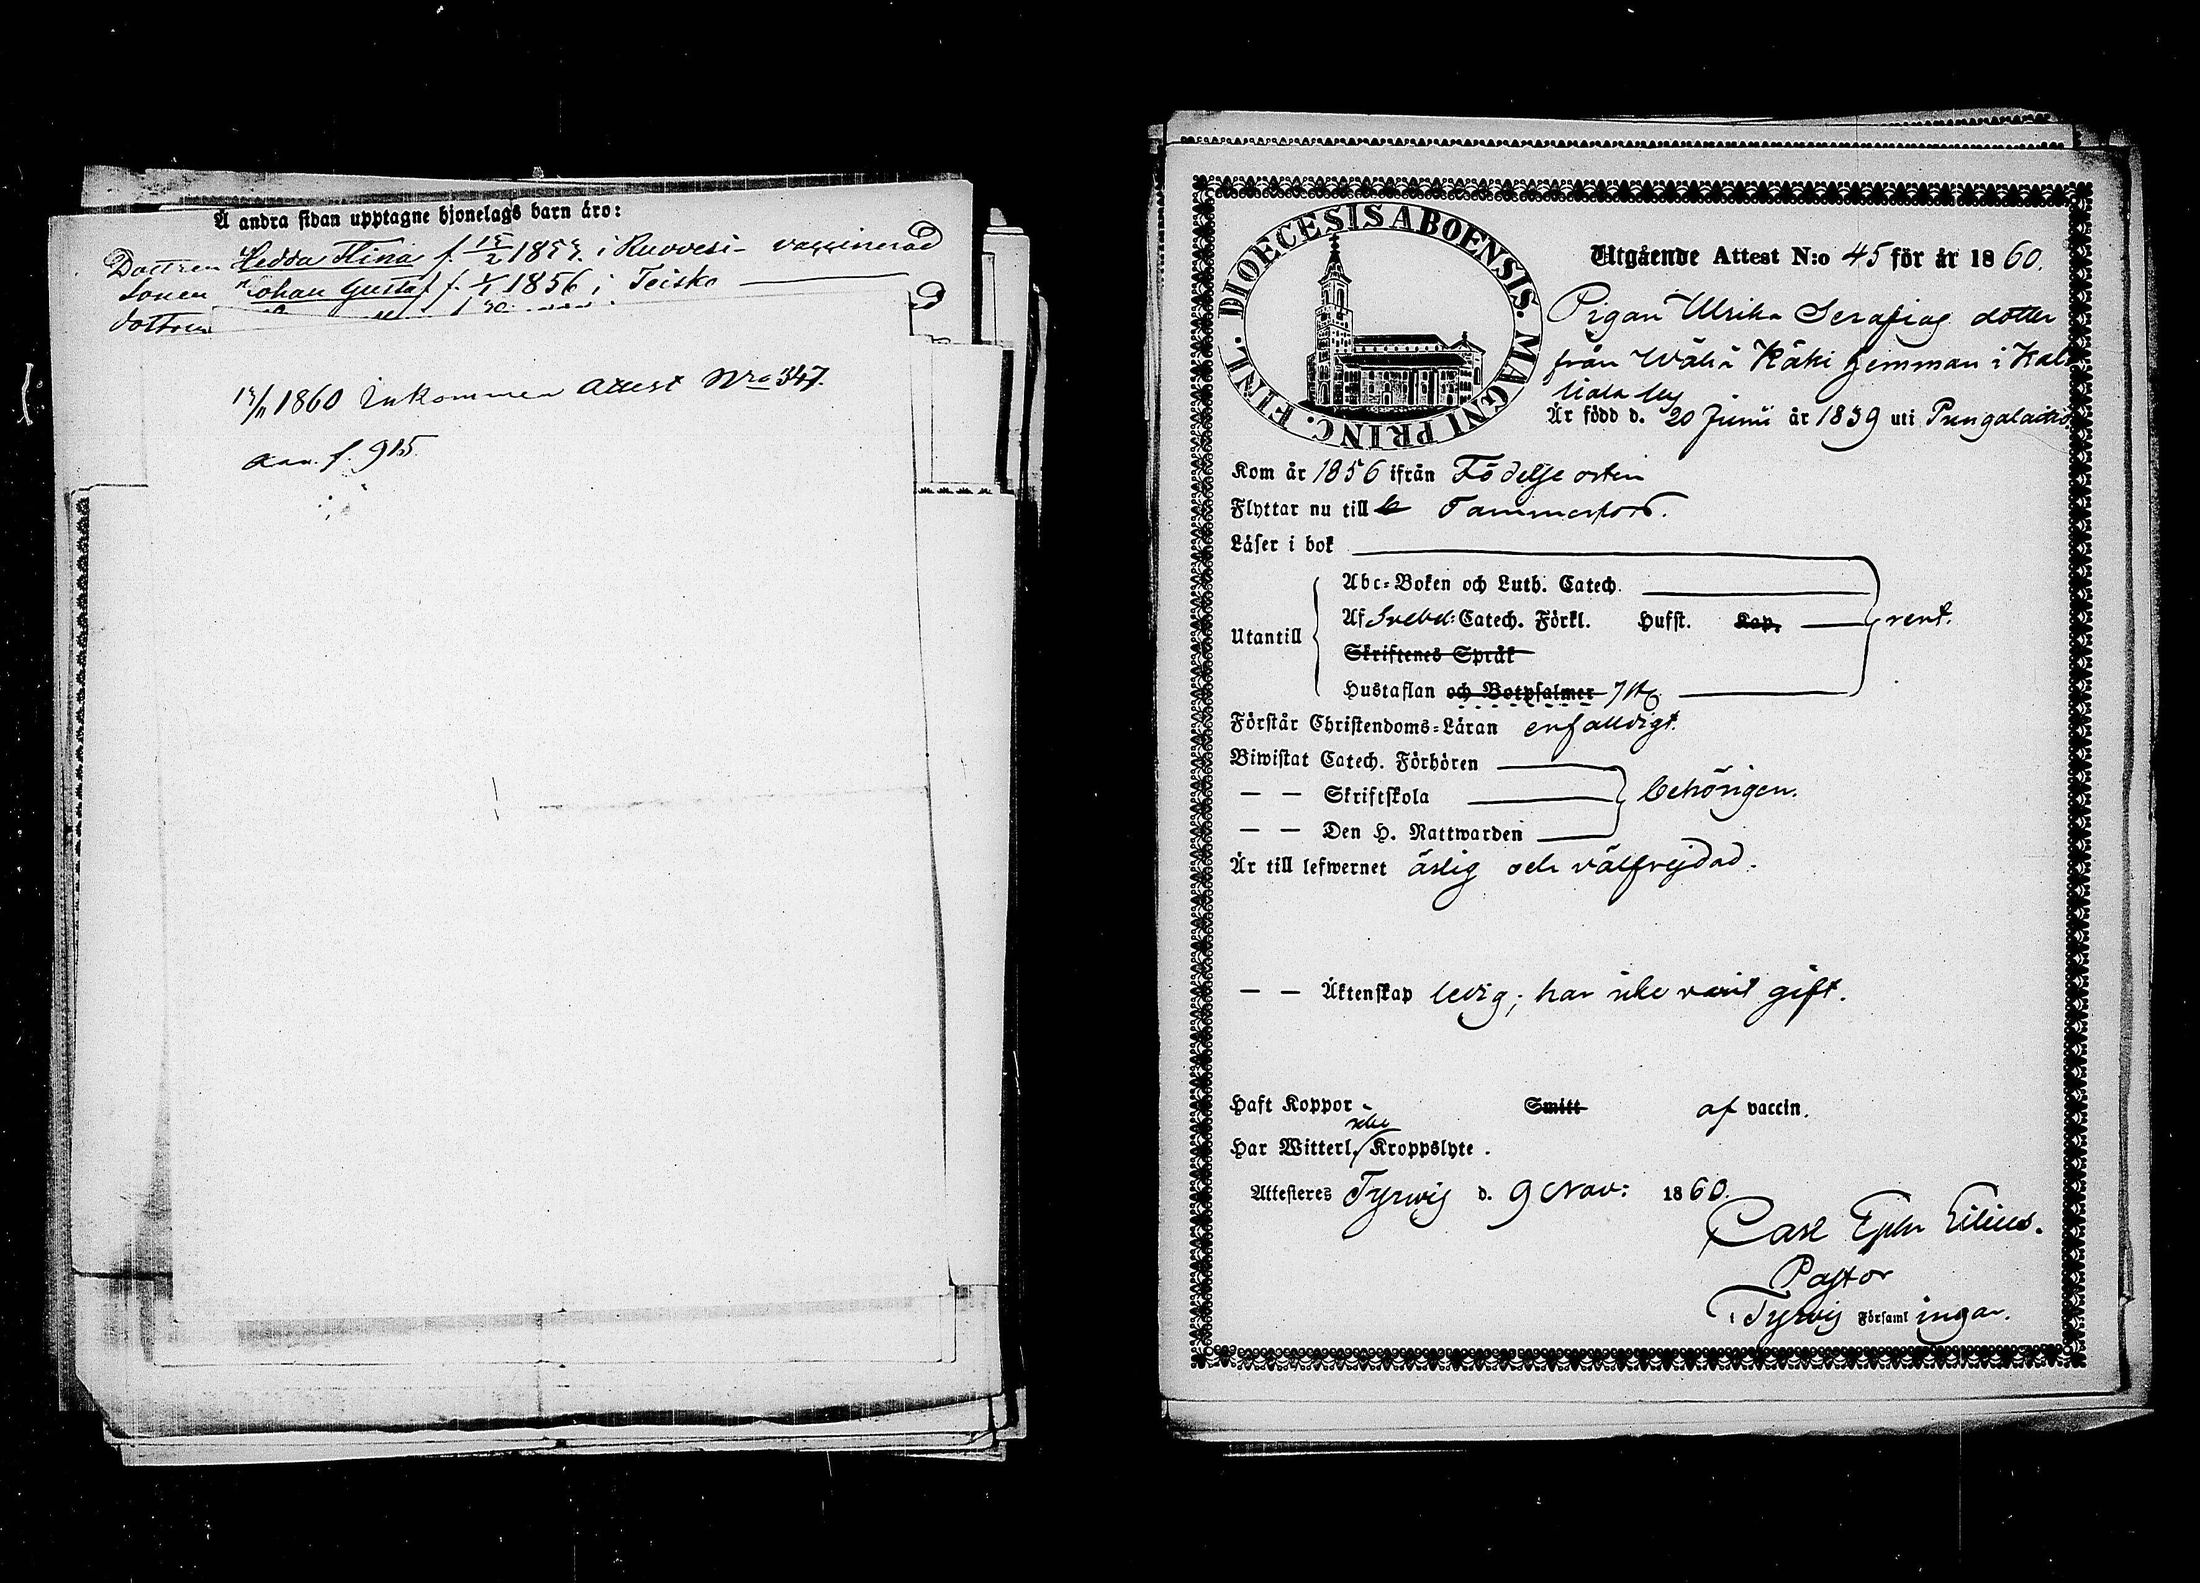 Å andra sidan upptagne hjonelags barn äro:
Dottren Hedda Stina f. 15/2 185 i Ruovesi - vaccinerad
Sonen Johan Gustaf f. 1/1 1856 i Teisko
dottren
1860 Inkommen attest Nro 347.
f. 915
DIOECESIS ABOENSIS. MAGNI PRINC. FINL.
Utgående Attest N:o 45 för år 1860.
Pigan Ulrika Serafia dotter
från Wäliä Käki hemman i Kal
liala by
Är född d. 20 Junii år 1839 uti Pungalaitio
Kom år 1856 ifrån Födelse orten
Flyttar nu till Tammerfors.
Läser i bok
Utantill
Abc-Boken och Luth. Catech.
Af Svebel: Catech. Förkl. Hufst. Kap.
Skriftenes Språk
Hustaflan och Botpsalmer 7 st
rent.
Förstår Christendoms-Läran enfaldigt.
Biwistat Catech. Förhören
— — Skriftskola
— — Den H. Nattwarden
behörigen.
Är till lefwernet ärlig och välfrejdad.
— — Äktenskap ledig; har icke varit gift.
Haft Koppor - Smitt af vaccin.
icke
Har Witterl. Kroppslyte.
Attesteres Tyrwis d. 9 Nov: 1860.
Carl Ephr Lilius.
Pastor
i Tyrwis Församlingar.